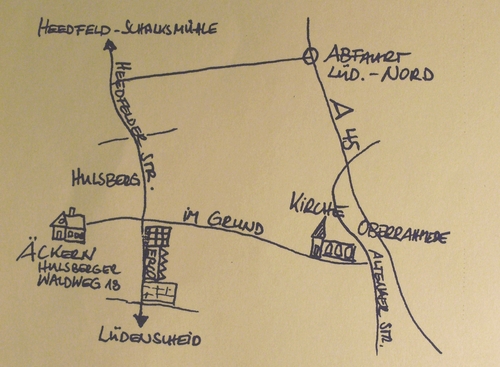 HEEDFELD-SCHALKSMÜHLE
ABFAHRT
LÜD.-NORD
HEEDFELDER STR.
A 45
HULSBERG
KIRCHE
IM GRUND
OBERRAHMEDE
ÄCKERN
HULSBERGER
WALDWEG 18
ALTENAER STR.
LÜDENSCHEID